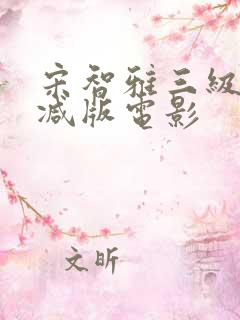 宋智雅三級
减版電影
文昕